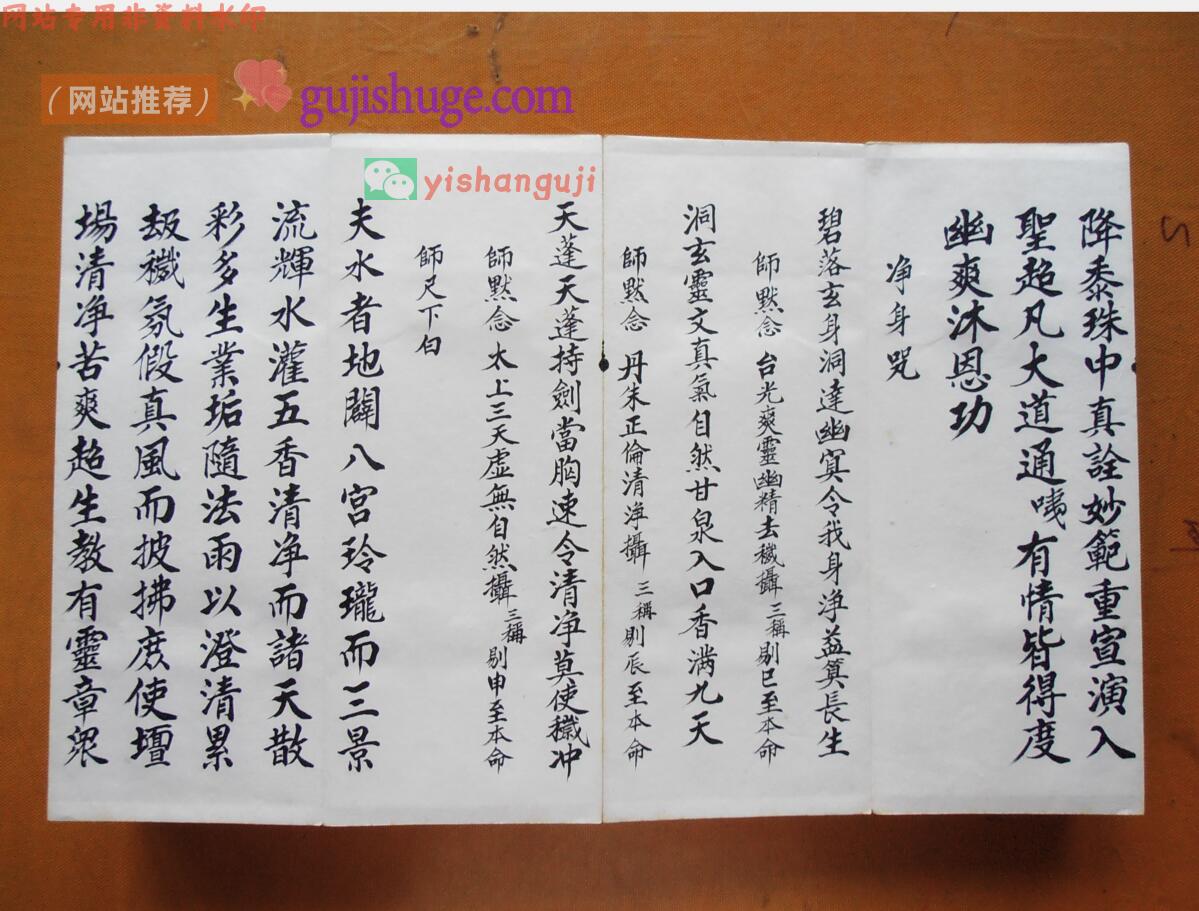 网站专用非资料水印
（网站推荐）
gujishuge.com
yishanguji
降黍珠中真詮妙範重宣演入
聖超凡大道通咦有情皆得度
幽爽沐恩功
净身咒
碧落玄身洞達幽冥令我身净益算長生
師默念 台光爽靈幽精去穢攝 三稱剔巳至本命
洞玄靈文真氣自然甘泉入口香满九天
師默念 丹朱正倫清净攝 三稱剔辰至本命
天蓬天蓬持劍當胸速令清净莫使穢冲
師默念 太上三天虚無自然攝 三稱剔申至本命
師尺下白
夫水者地闢八宫玲瓏而三景
流輝水灌五香清净而諸天散
彩多生業垢隨法雨以澄清累
刼穢氛假真風而披拂庶使壇
場清净苦爽超生教有靈章衆